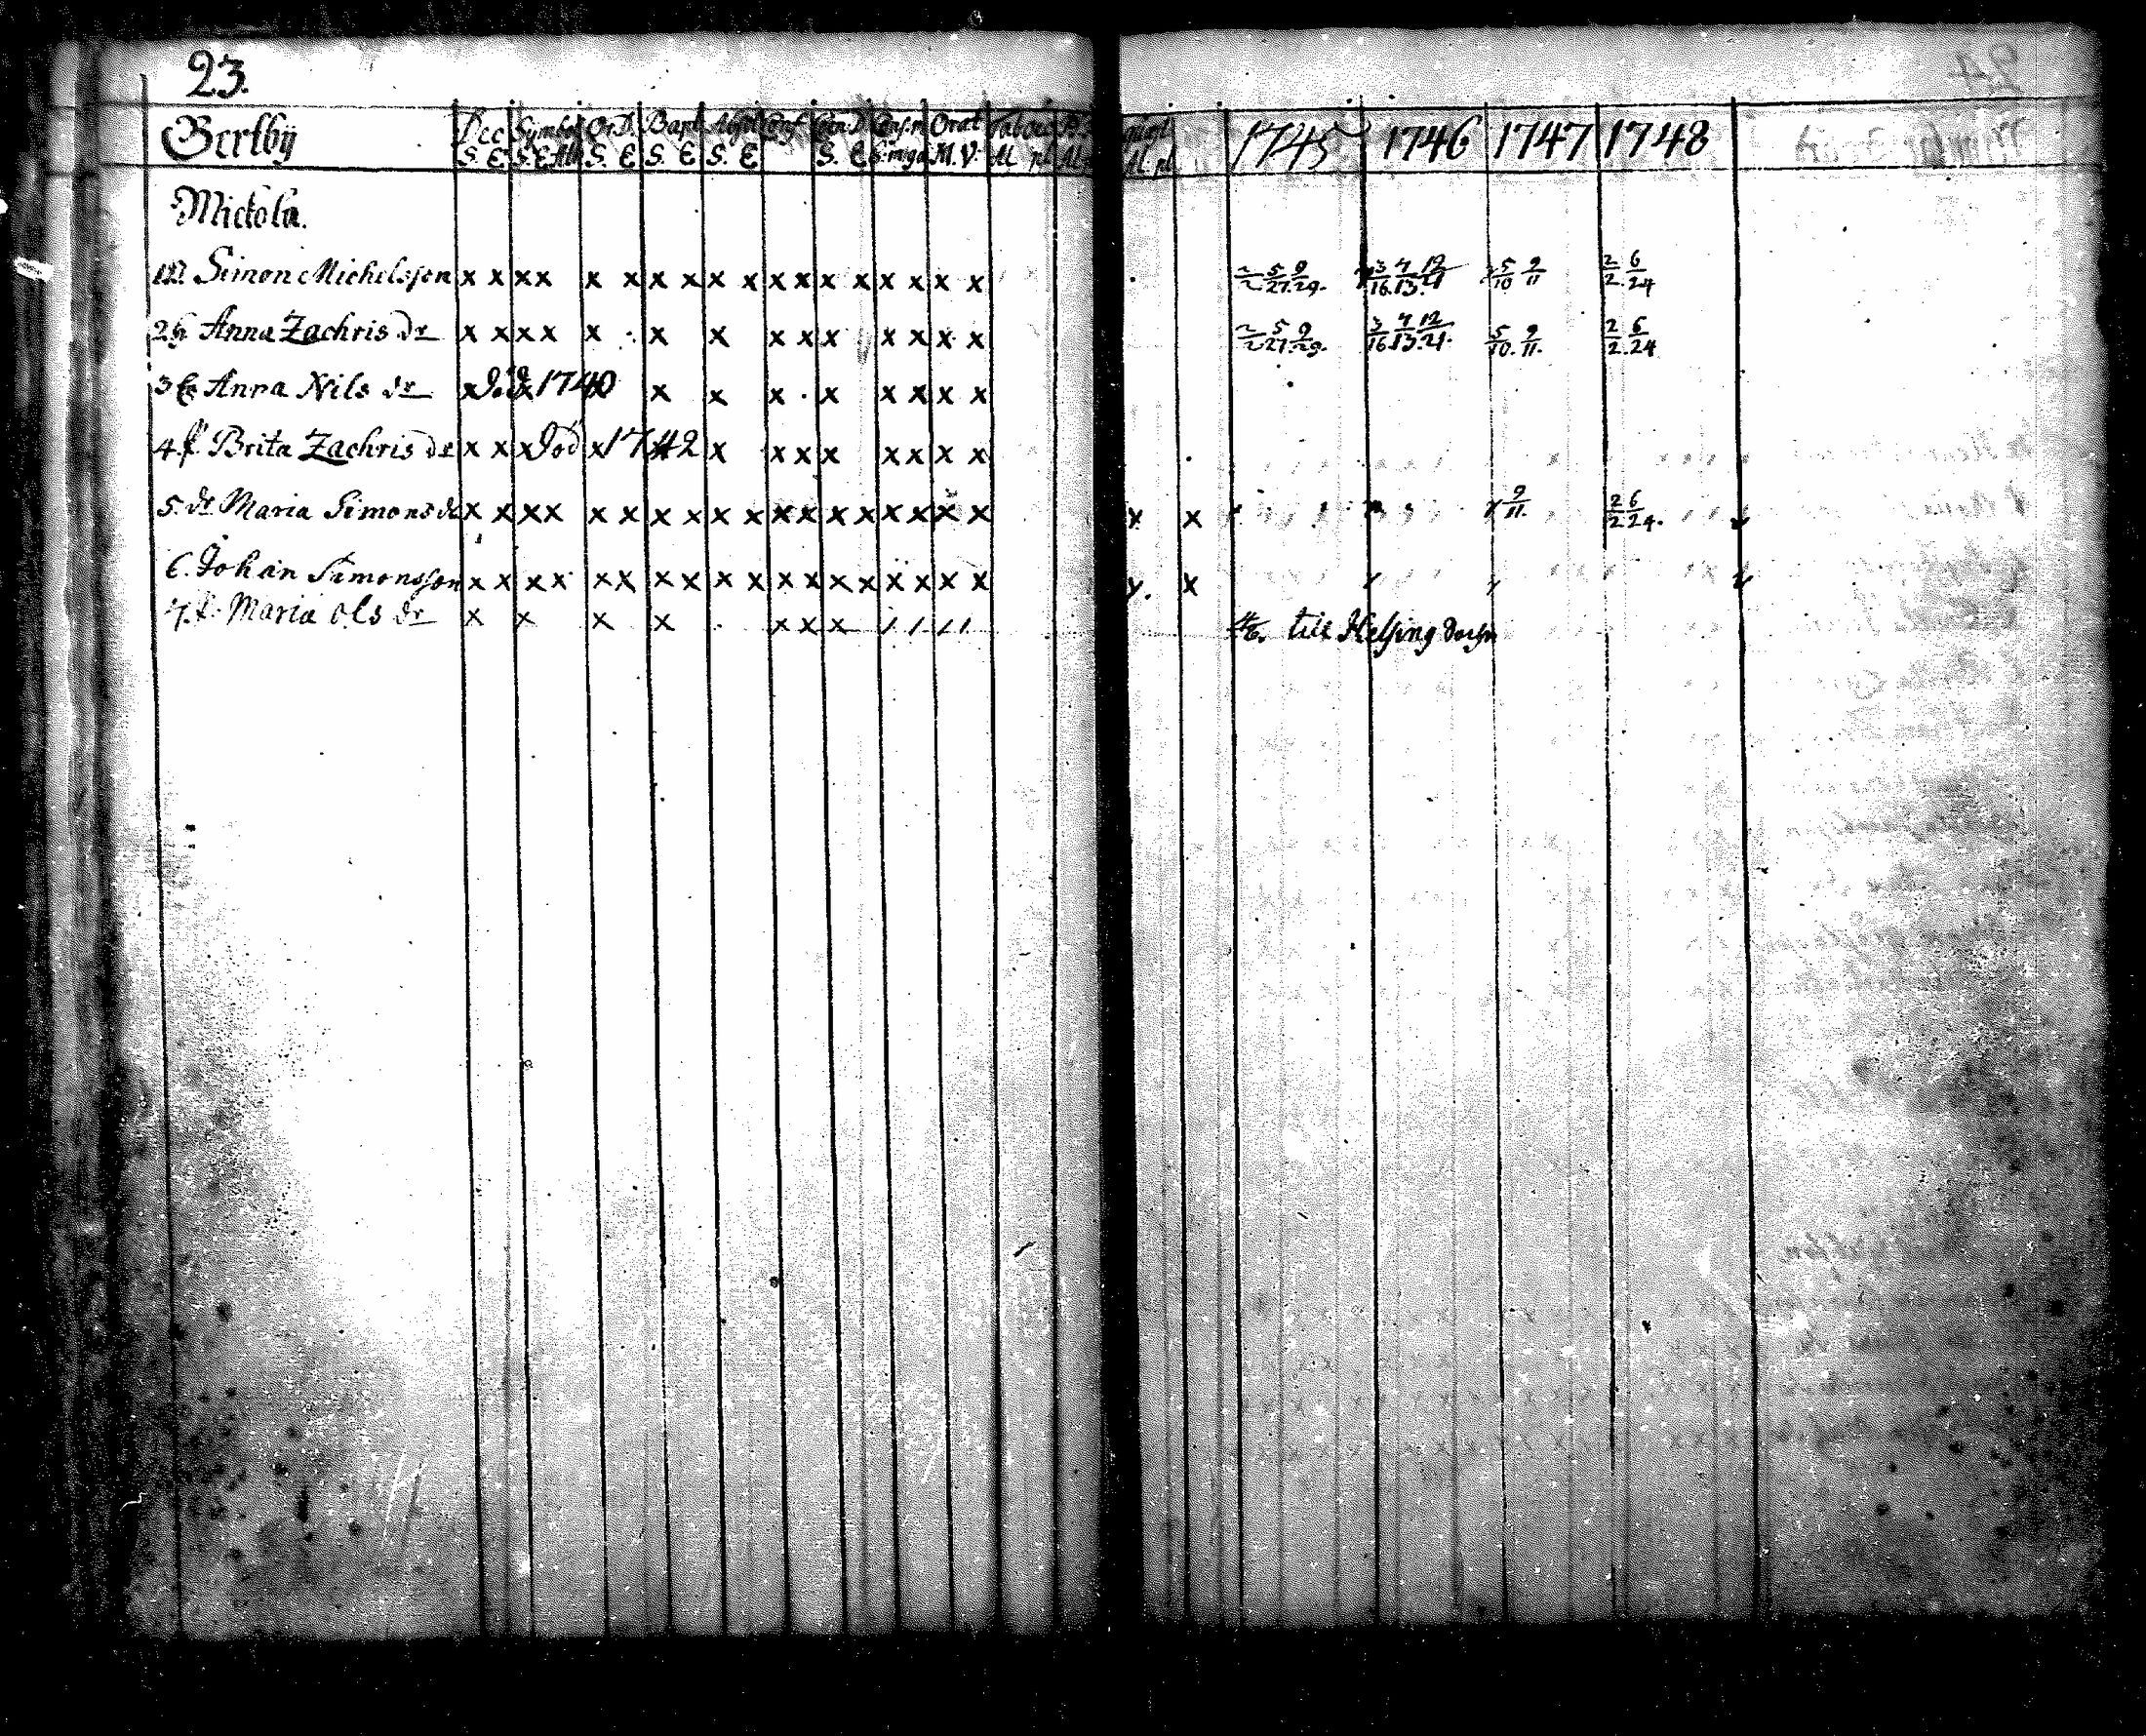 23.
Gerlby Dec Symbol Or.D. Bapt Absol Conf Cœn.D Orat 1745 1746 1747 1748
S. E S. E Ath S. E S. E S. E S. E M. V. M pl M pl
Mickola.
1 Simon Michelsson x x x x x x x x x x x x x x x x x x 2/2 5/27 9/29. 3/16 4/13 12/21 5/10 9/11 2/2 6/24
2 h Anna Zachris dr x x x x x x x x x x x x x x 2/2 5/27 9/29. 3/16 4/13 12/21. 5/10. 9/11. 2/2 6/24
3 Anna Nils dr x död 1740 x x x x x x x x
4. Brita Zachris dr x x x Död x 1742 x x x x x x x x
5. dr Maria Simons dr x x x x x x x x x x x x x x x x x x x x 9/11. 2/2 6/24.
6. Johan Simonsson x x x x x x x x x x x x x x x x x x x
7. Maria Ols dr x x x x x x x till Helsing